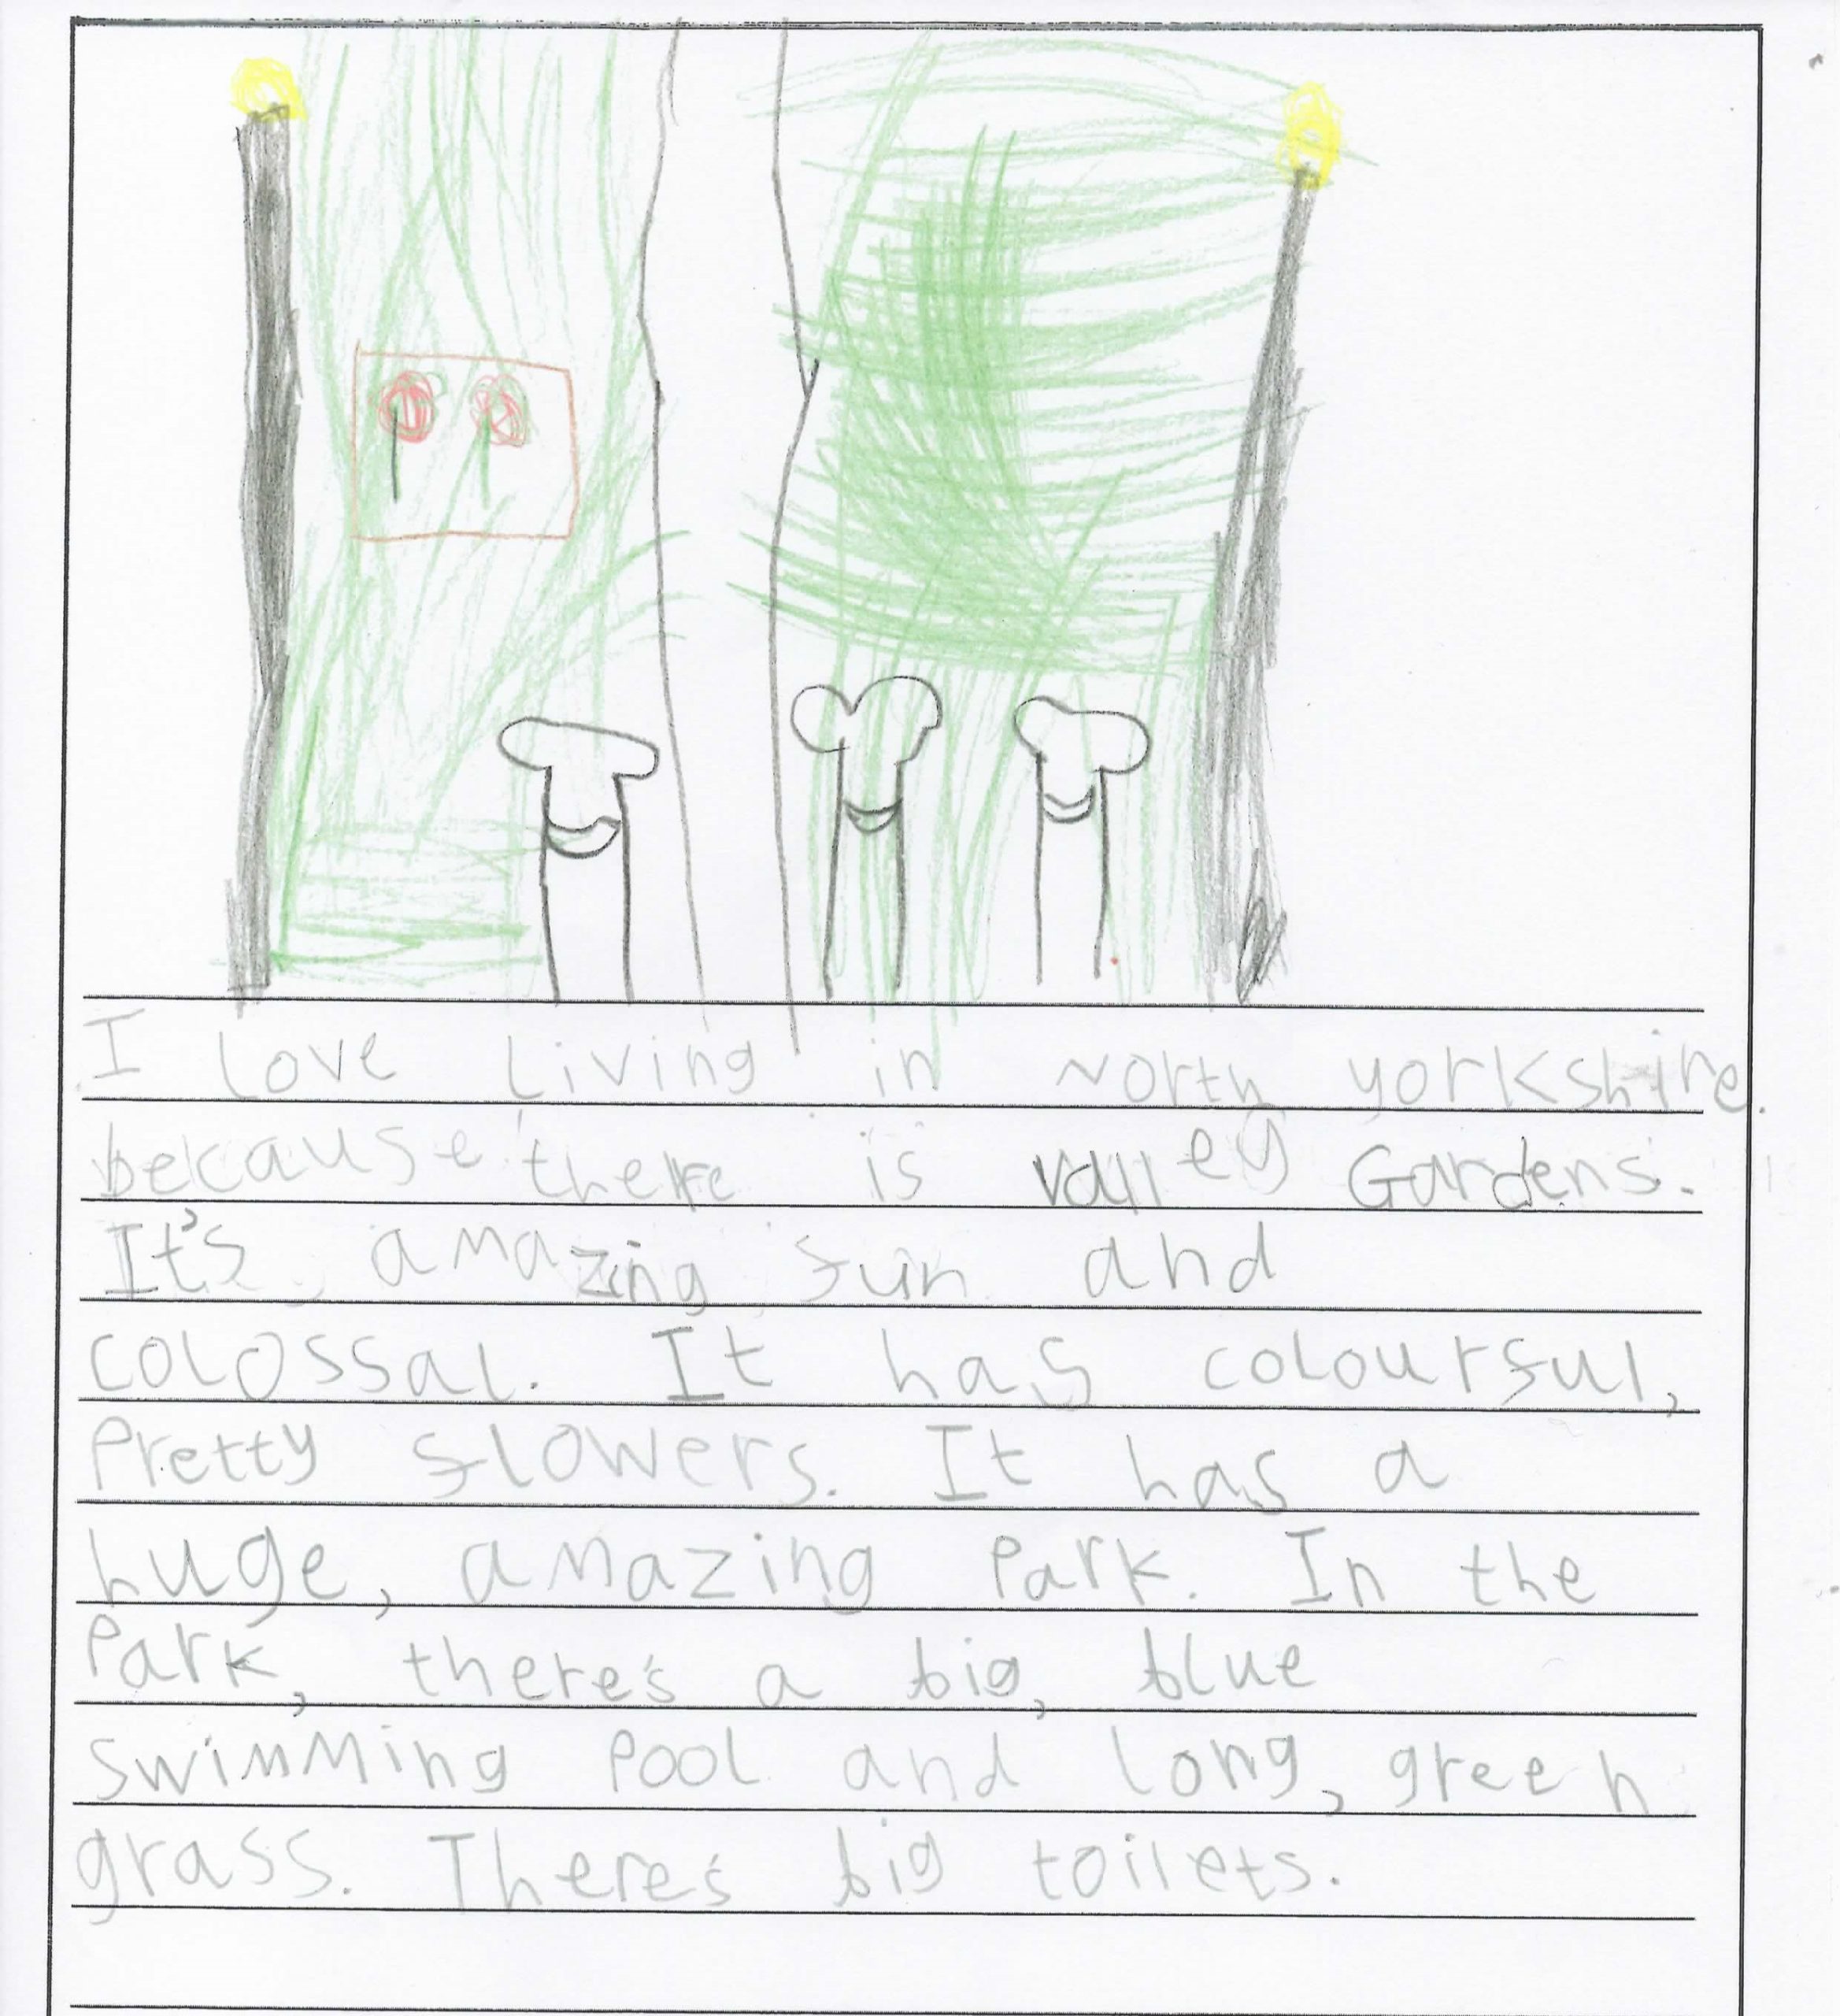 I love living in North yorkshire.
because there is valley Gardens.
It's amazing fun and
colossal. It has colourful,
Pretty flowers. It has a
huge, amazing Park. In the
Park, there's a big, blue
swimming Pool and long, green
grass. There's big toilets.